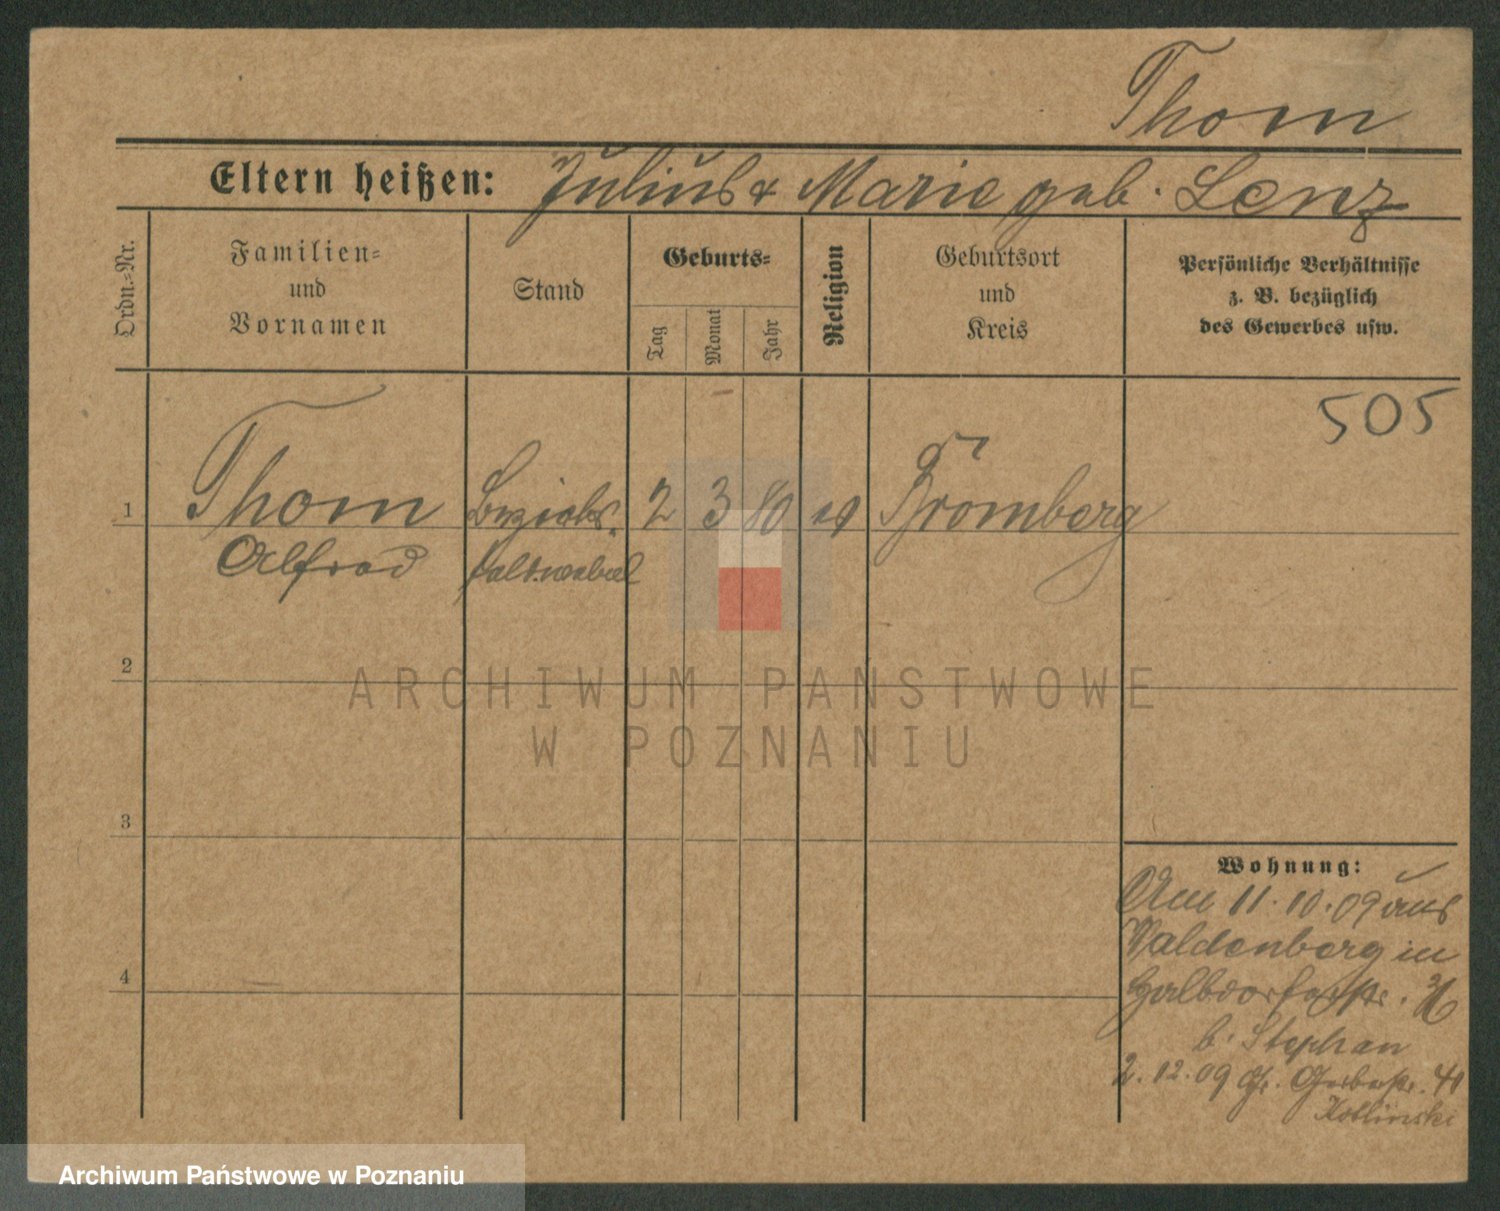 Thom
Eltern heißen: Julius & Marie geb. Lenz
Ordn.-Nr.
Familien-
und
Vornamen
Stand
Geburts-
Tag
Monat
Jahr
Religion
Geburtsort
und
Kreis
Persönliche Verhältnisse
z. B. bezüglich
des Gewerbes usw.
505
1 Thom Bezirks. 2 3 80 ev Bromberg
Alfred feldwebel
2
ARCHIWUM PAŃSTWOWE
W POZNANIU
3
Wohnung:
Am 11.10.09 aus
Waldenberg in
4
Halbdorfstr.
b. Stephan
2.12.09 Gr. Gerberstr. 41
Koblinski
Archiwum Państwowe w Poznaniu